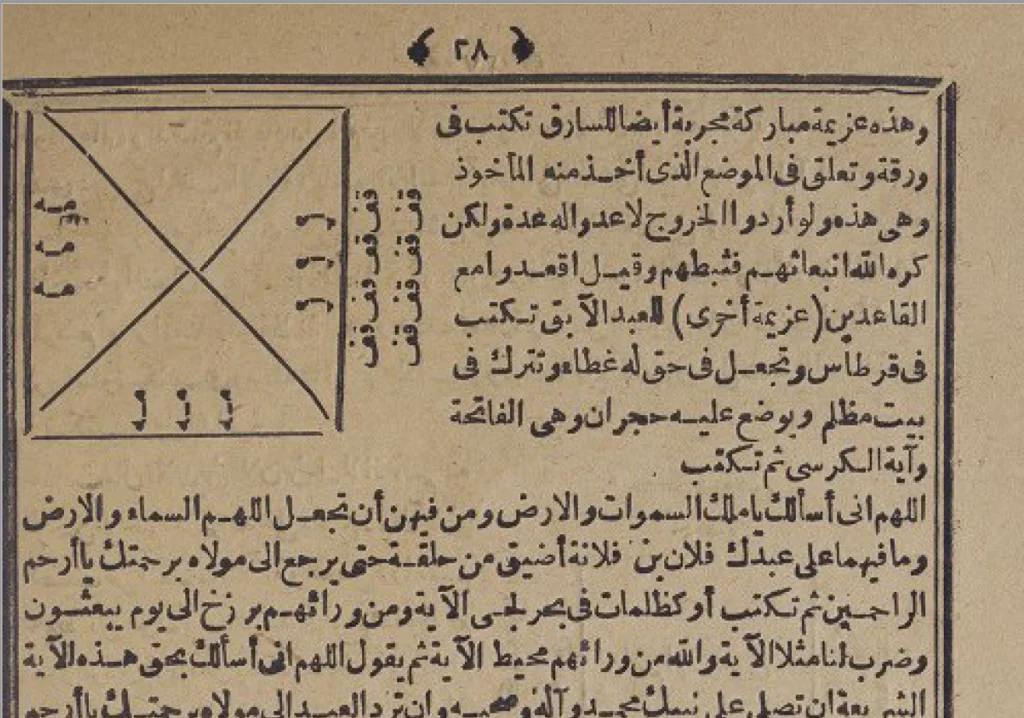 ٢٨
وهذه عزيمة مباركة مجربة أيضا للسارق تكتب فى
ورقة وتعلق فى الموضع الذى أخذ منه المأخوذ
وهى هذه ولو أردوا الخروج لاعدوا له عدة ولكن
كره الله انبعاثهم فثبطهم وقيل اقعدوا مع
القاعدين (عزيمة أخرى) للعبد الآبق تكتب
فى قرطاس وتجعل فى حق له غطاء وتترك فى
بيت مظلم ويوضع عليه حجران وهى الفاتحة
وآية الكرسى ثم تكتب
قف قف قف قف
قف قف قف قف
مه مه مه
مه مه مه
اللهم انى أسألك يا ملك السموات والارض ومن فيهن أن تجعل اللهم السماء والارض
وما فيهما على عبدك فلان بن فلانة أضيق من حلقة حتى يرجع الى مولاه برحمتك يا أرحم
الراحمين ثم تكتب أو كظلمات فى بحر لجى الآية ومن ورائهم برزخ الى يوم يبعثون
وضرب لنا مثلا الآية والله من ورائهم محيط الآية ثم يقول اللهم انى أسألك بحق هذه الآية
الشريعة ان تصلى على نبيك محمد وآله وصحبه وان ترد العبد الى مولاه برحمتك يا أرحم